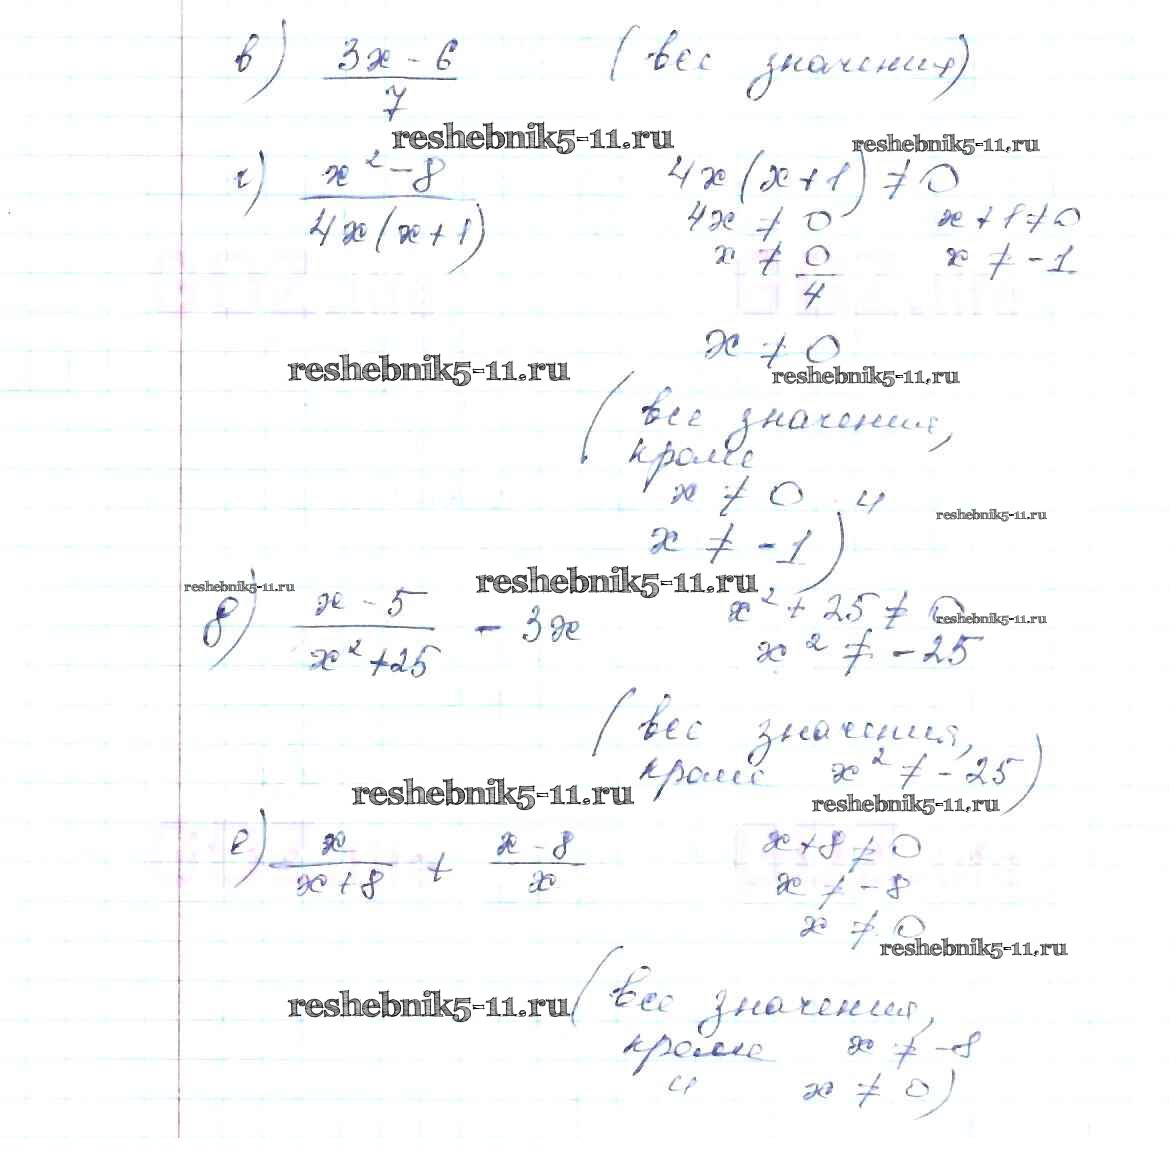 в) (3x - 6)/7 (все значения)
reshebnik5-11.ru
reshebnik5-11.ru
г) (x² - 8)/(4x(x+1)) 4x(x+1) ≠ 0
4x ≠ 0 x+1≠0
x ≠ 0/4 x ≠ -1
x ≠ 0
reshebnik5-11.ru
reshebnik5-11.ru
(все значения,
кроме
x ≠ 0 и
x ≠ -1)
reshebnik5-11.ru
reshebnik5-11.ru
reshebnik5-11.ru
д) (x - 5)/(x²+25) - 3x x² + 25 ≠ 0
reshebnik5-11.ru
x² ≠ -25
(все значения,
кроме x² ≠ -25)
reshebnik5-11.ru
reshebnik5-11.ru
е) x/(x+8) + (x - 8)/x x+8 ≠ 0
x ≠ -8
x ≠ 0
reshebnik5-11.ru
reshebnik5-11.ru
(все значения,
кроме x ≠ -8
и x ≠ 0)